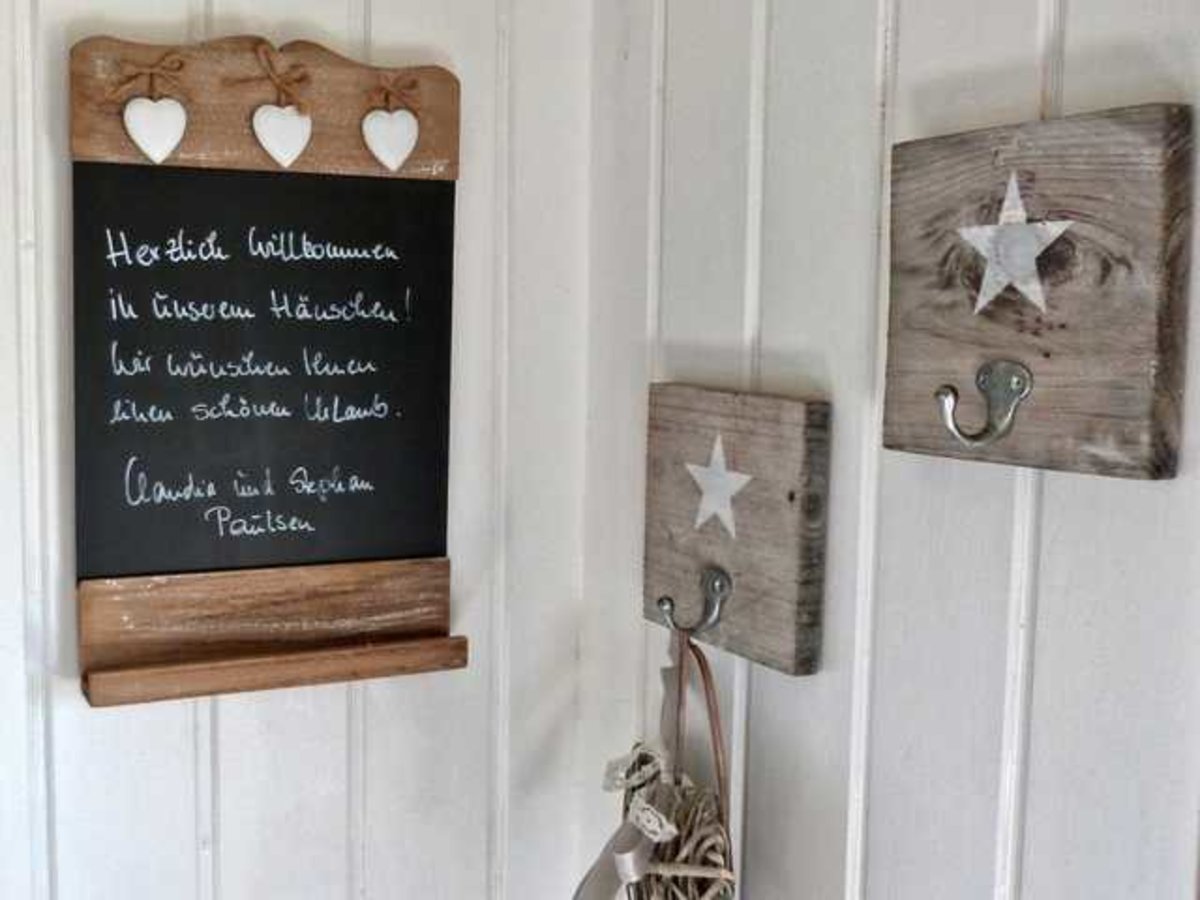 Herzlich Willkommen
in unserem Häuschen!
Wir wünschen Ihnen
einen schönen Urlaub.
Claudia und Stephan
Paulsen